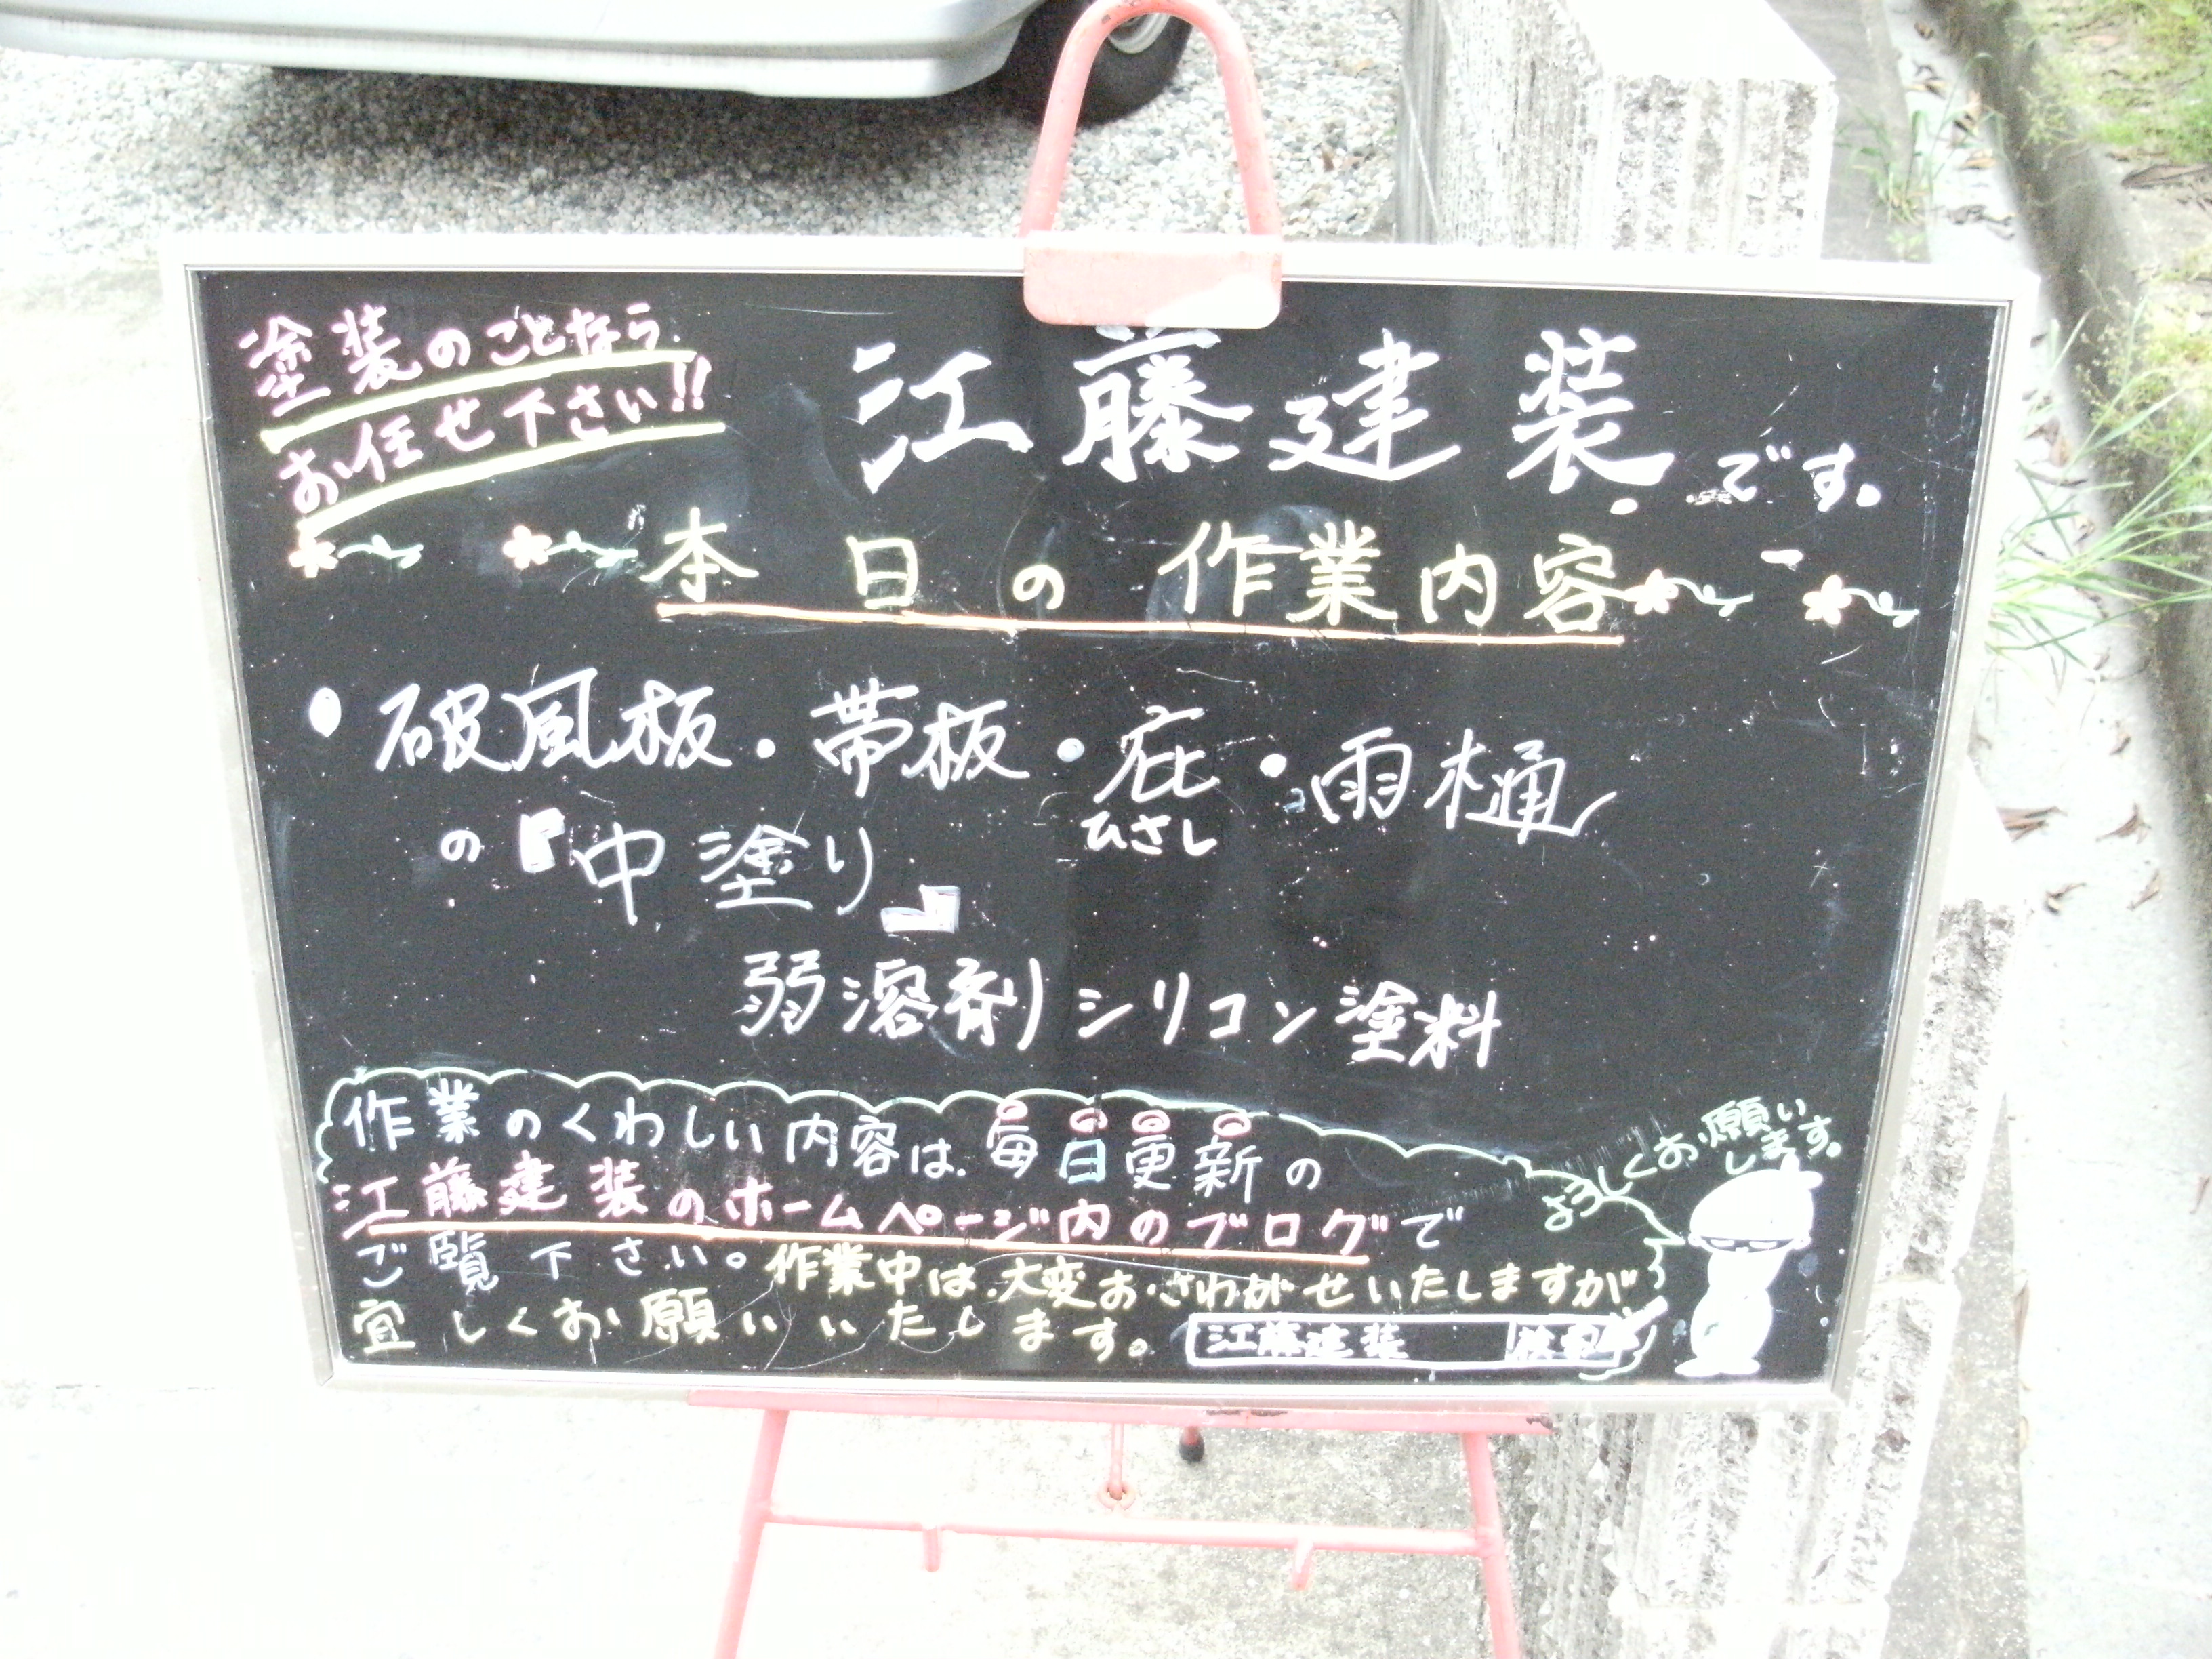 塗装のことなら
お任せ下さい!!
江藤建装です。
本日の作業内容
・破風板・帯板・庇・雨樋
ひさし
の『中塗り』
弱溶剤シリコン塗料
作業のくわしい内容は、毎日更新の
江藤建装のホームページ内のブログで
ご覧下さい。作業中は、大変おさわがせいたしますが
宜しくお願いいたします。
江藤建装 検索
よろしくお願い
します。